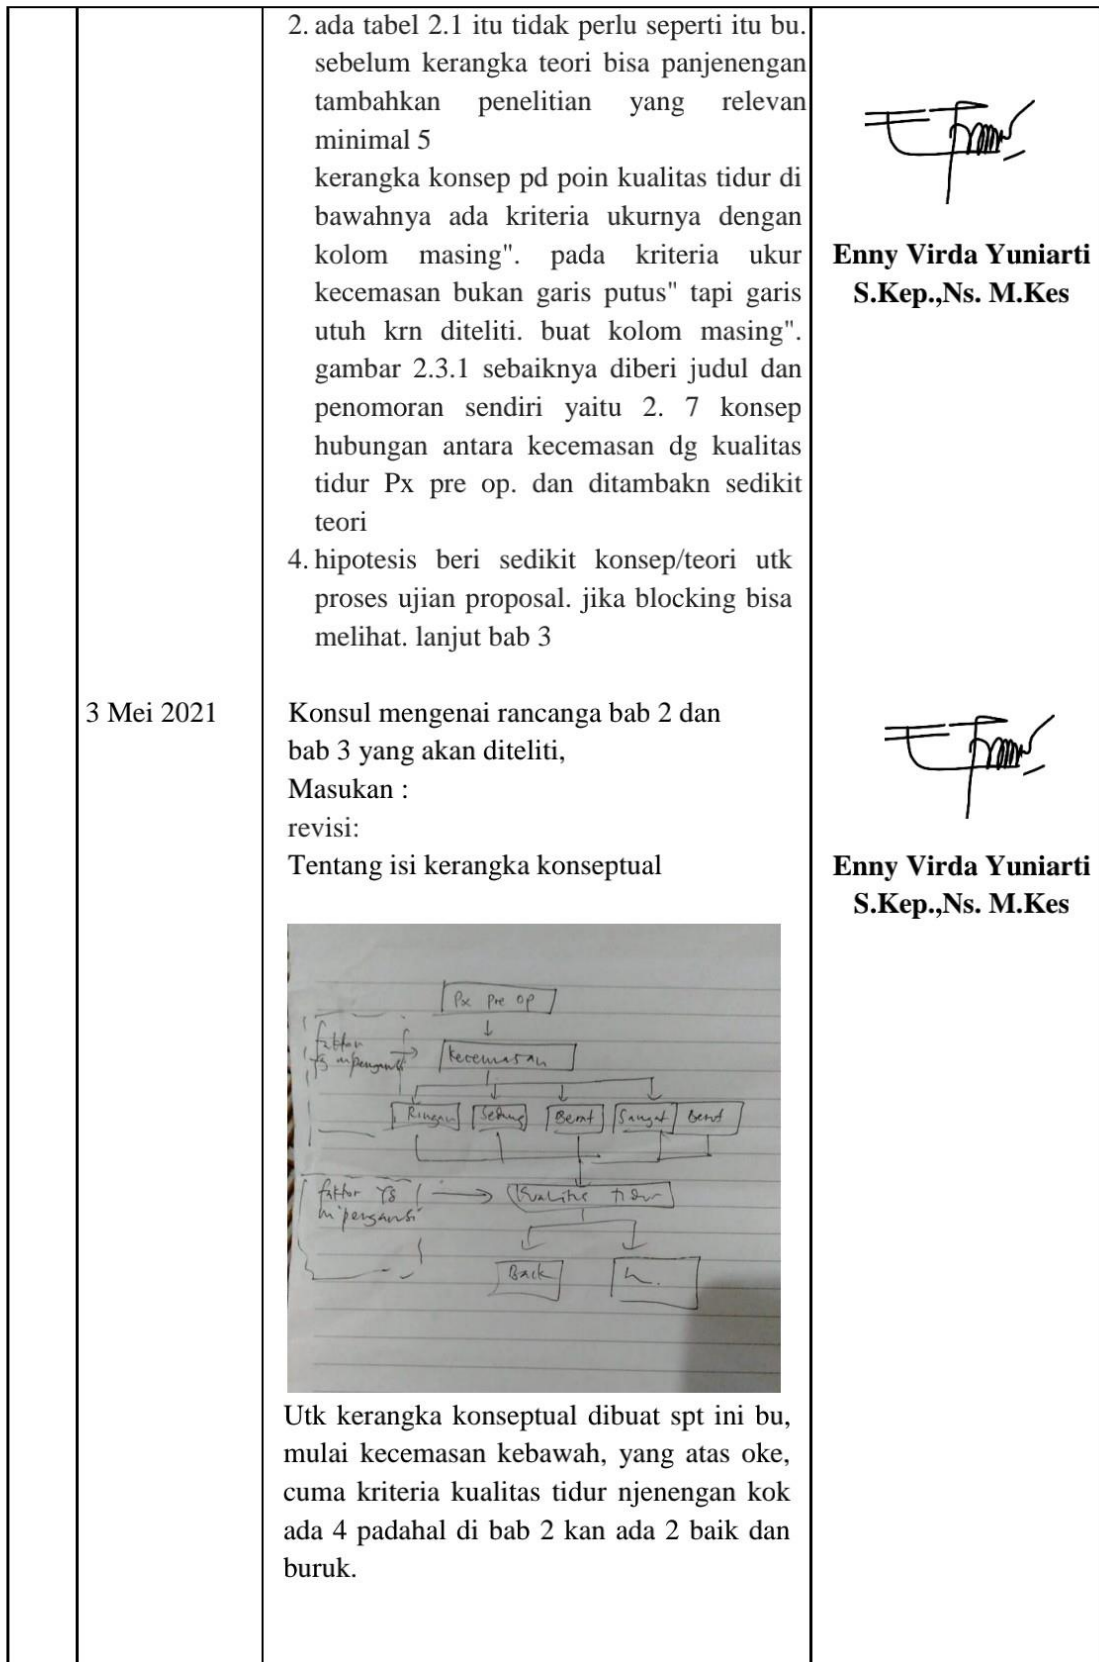 2. ada tabel 2.1 itu tidak perlu seperti itu bu.
sebelum kerangka teori bisa panjenengan
tambahkan penelitian yang relevan
minimal 5
kerangka konsep pd poin kualitas tidur di
bawahnya ada kriteria ukurnya dengan
kolom masing". pada kriteria ukur
kecemasan bukan garis putus" tapi garis
utuh krn diteliti. buat kolom masing".
gambar 2.3.1 sebaiknya diberi judul dan
penomoran sendiri yaitu 2. 7 konsep
hubungan antara kecemasan dg kualitas
tidur Px pre op. dan ditambakn sedikit
teori
4. hipotesis beri sedikit konsep/teori utk
proses ujian proposal. jika blocking bisa
melihat. lanjut bab 3
Enny Virda Yuniarti
S.Kep.,Ns. M.Kes
3 Mei 2021
Konsul mengenai rancanga bab 2 dan
bab 3 yang akan diteliti,
Masukan :
revisi:
Tentang isi kerangka konseptual
Enny Virda Yuniarti
S.Kep.,Ns. M.Kes
Px pre op
faktor
yg
kecemasan
Ringan Sedang Berat Sangat Berat
faktor yg
Kualitas tidur
Baik
Utk kerangka konseptual dibuat spt ini bu,
mulai kecemasan kebawah, yang atas oke,
cuma kriteria kualitas tidur njenengan kok
ada 4 padahal di bab 2 kan ada 2 baik dan
buruk.